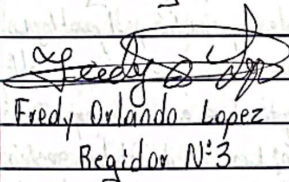 Fredy Orlando Lopez
Regidor N°3